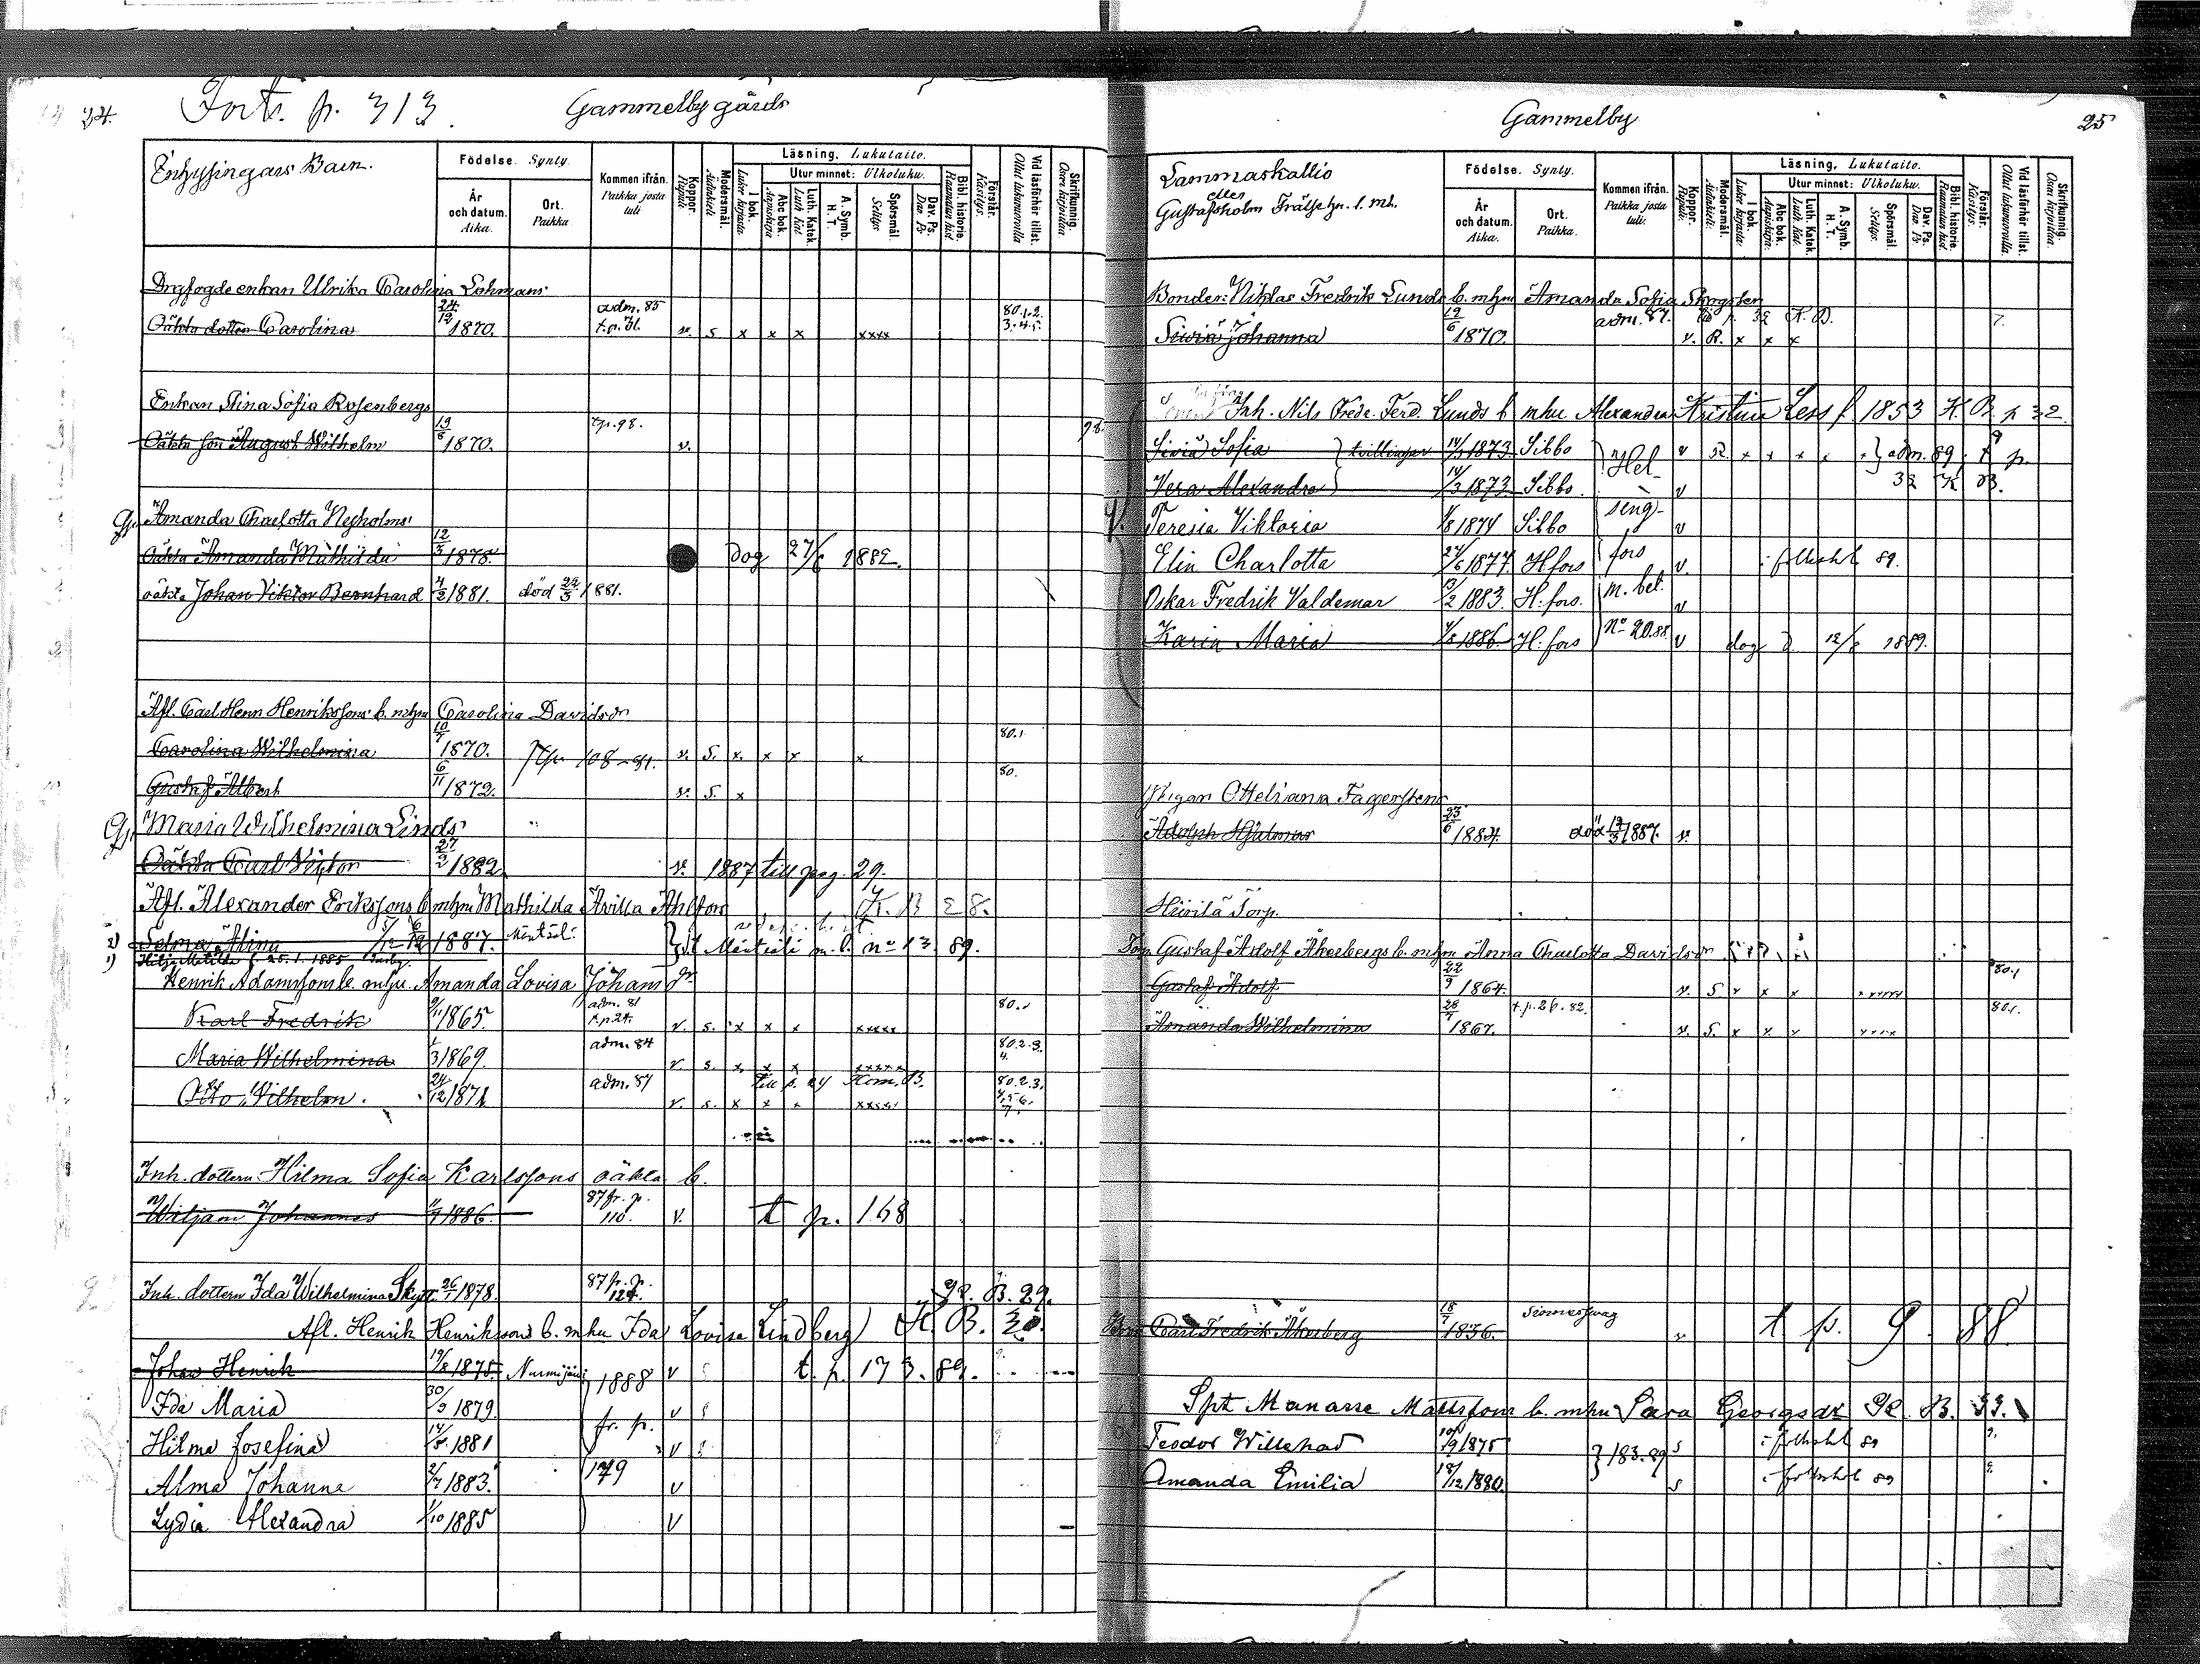 24.
Forts. p. 313.
Gammelby gårds
Inhysingars Barn.
Födelse. Synty.
År och datum. Aika.
Ort. Paikka
Kommen ifrån. Paikka josta tuli
Koppor. Rupuli
Modersmål. Äidinkieli
Läsning, Lukutaito.
I bok. Luku kirjasta
Utur minnet: Ulkoluku.
Abc bok. Aapiskirja
Luth. Katek. Luth Kat.
A. Symb. H. T.
Spörsmål. Selitys
Dav. Ps. Dav. Ps
Bibl. historie. Raamatun hist.
Förstår. Käsitys.
Vid läsförhör tillst. Ollut lukuluvuilla
Skrifkunnig. Osaa kirjoittaa
Drgfogdeenkan Ulrika Carolina Lohmans
Oäkta dotter Carolina 24/12 1870. adm. 85 t.p. 31. v. s x x x xxxx 80.1.2. 3.4.5.
Enkan Stina Sofia Rosenbergs
Oäkta son August Wilhelm 19/8 1870. t.p. 98. v. 98
Amanda Charlotta Nyholms
Oäkta Amanda Mathilda 12/3 1878. Dog 27/6 1882.
oäkta Johan Viktor Bernhard 4/2 1881. död 22/3 1881.
Afl. Carl Henr Henrikssons b. mhu Carolina Davidsdr
Carolina Wilhelmina 10/7 1870. t.p. 108-81. v. s. x. x x x 80.1
Gustaf Albert 6/11 1872. v. s. x 80.
Maria Wilhelmina Linds
Oäkta Carl Victor 27/2 1882 v. 1887 till pag. 29.
Afl. Alexander Erikssons b mhu Mathilda Avilla Ahlfors K. B 28.
2) Selma Alina 1887. Mäntsäl. t Mäntsälä m. b. no 13. 89.
1) Hilja Matilda f. 25.1.1885
Henrik Adamssons b. mhu. Amanda Lovisa Johansdr
Karl Fredrik 9/11 1865. adm. 81 t.p 24. v. s. x x x xxxx 80.1
Maria Wilhelmina 1/3 1869. adm. 84 v. s. x x x xxxxx 80.2.3. 4.
Otto Wilhelm. 24/12 1871 adm. 87 till p. 24 Kom. B. v. s. x x x xxxxx 80.2.3. 4.5.6. 7.
Inh. dottern Hilma Sofia Karlssons oäkta b.
Wiljam Johannes 1886. 87 fr. p. 110. v. t p. 168
Inh. dottern Ida Wilhelmina Skytt. 26/1 1878. 87 fr. p. 124. K. B. 29.
Afl. Henrik Henrikssons b. mhu Ida Lovisa Lindberg K. B. 30.
Johan Henrik 19/8 1875 Nurmijärvi 1888 v s t. p. 173. 89.
Ida Maria 30/3 1879. fr. p. v s
Hilma Josefina 14/5 1881 v s
Alma Johanna 2/7 1883. 179 v
Lydia Alexandra 1/10 1885 v
25
Gammelby
Lammaskallio
eller
Gustafsholm Frälsehn. 1. mh.
Födelse. Synty.
År och datum. Aika.
Ort. Paikka.
Kommen ifrån. Paikka josta tuli.
Koppor. Rupuli.
Modersmål. Äidinkieli.
Läsning, Lukutaito.
I bok. Luku kirjasta.
Utur minnet: Ulkoluku.
Abc bok. Aapiskirja.
Luth. Katek. Luth Kat.
A. Symb. H. T.
Spörsmål. Selitys.
Dav. Ps. Dav. Ps
Bibl. historie. Raamatun hist.
Förstår. Käsitys.
Vid läsförhör tillst. Ollut lukuluvuilla
Skrifkunnig. Osaa kirjoittaa.
Bonden: Niklas Fredrik Lunds b. mhu Amanda Sofia Skogster
Siviä Johanna 19/6 1870. adm. 87. till p. 32 K. B. v. R. x x x 7.
Inh. Nils Fredr. Ferd. Lunds b mhu Alexandra Kristina Less f. 1853 K. B. p 32
Siviä Sofia } tvillingar 14/3 1873 Sibbo v x x x x adm. 89. t p.
Vera Alexandra 14/3 1873 Sibbo. Hel- v 32 K B.
Teresia Viktoria 1/8 1874 Sibbo sing- v
Elin Charlotta 27/6 1877 H.fors fors v i folkskol 89.
Oskar Fredrik Valdemar 13/2 1883. H.fors. m. bet. v
Karin Maria 4/8 1886. H. fors No 20.88 v dog d. 12/8 1889.
Pigan Otteliana Fagerstens
Adolph Hjalmar 23/6 1884. död 17/3 1887. v.
Hiivilä Torp.
Torp. Gustaf Adolf Åkerbergs b. mhu Anna Charlotta Davidsdr
Gustaf Adolf 22/9 1864. v. S x x x xxxxx 80.1
Amanda Wilhelmina 28/7 1867. t.p. 26. 82. v. S. x x x xxxx 80.1.
Carl Fredrik Åkerberg 18/7 1836. v t p. 9. 88
Spt Manasse Mattssons b. mhu Sara Georgsdr K. B. 33.
Teodor Willehad 10/9 1875 } 183.89 s i folkskol 89 9.
Amanda Emilia 18/12 1880. s i folkskol 89 9.